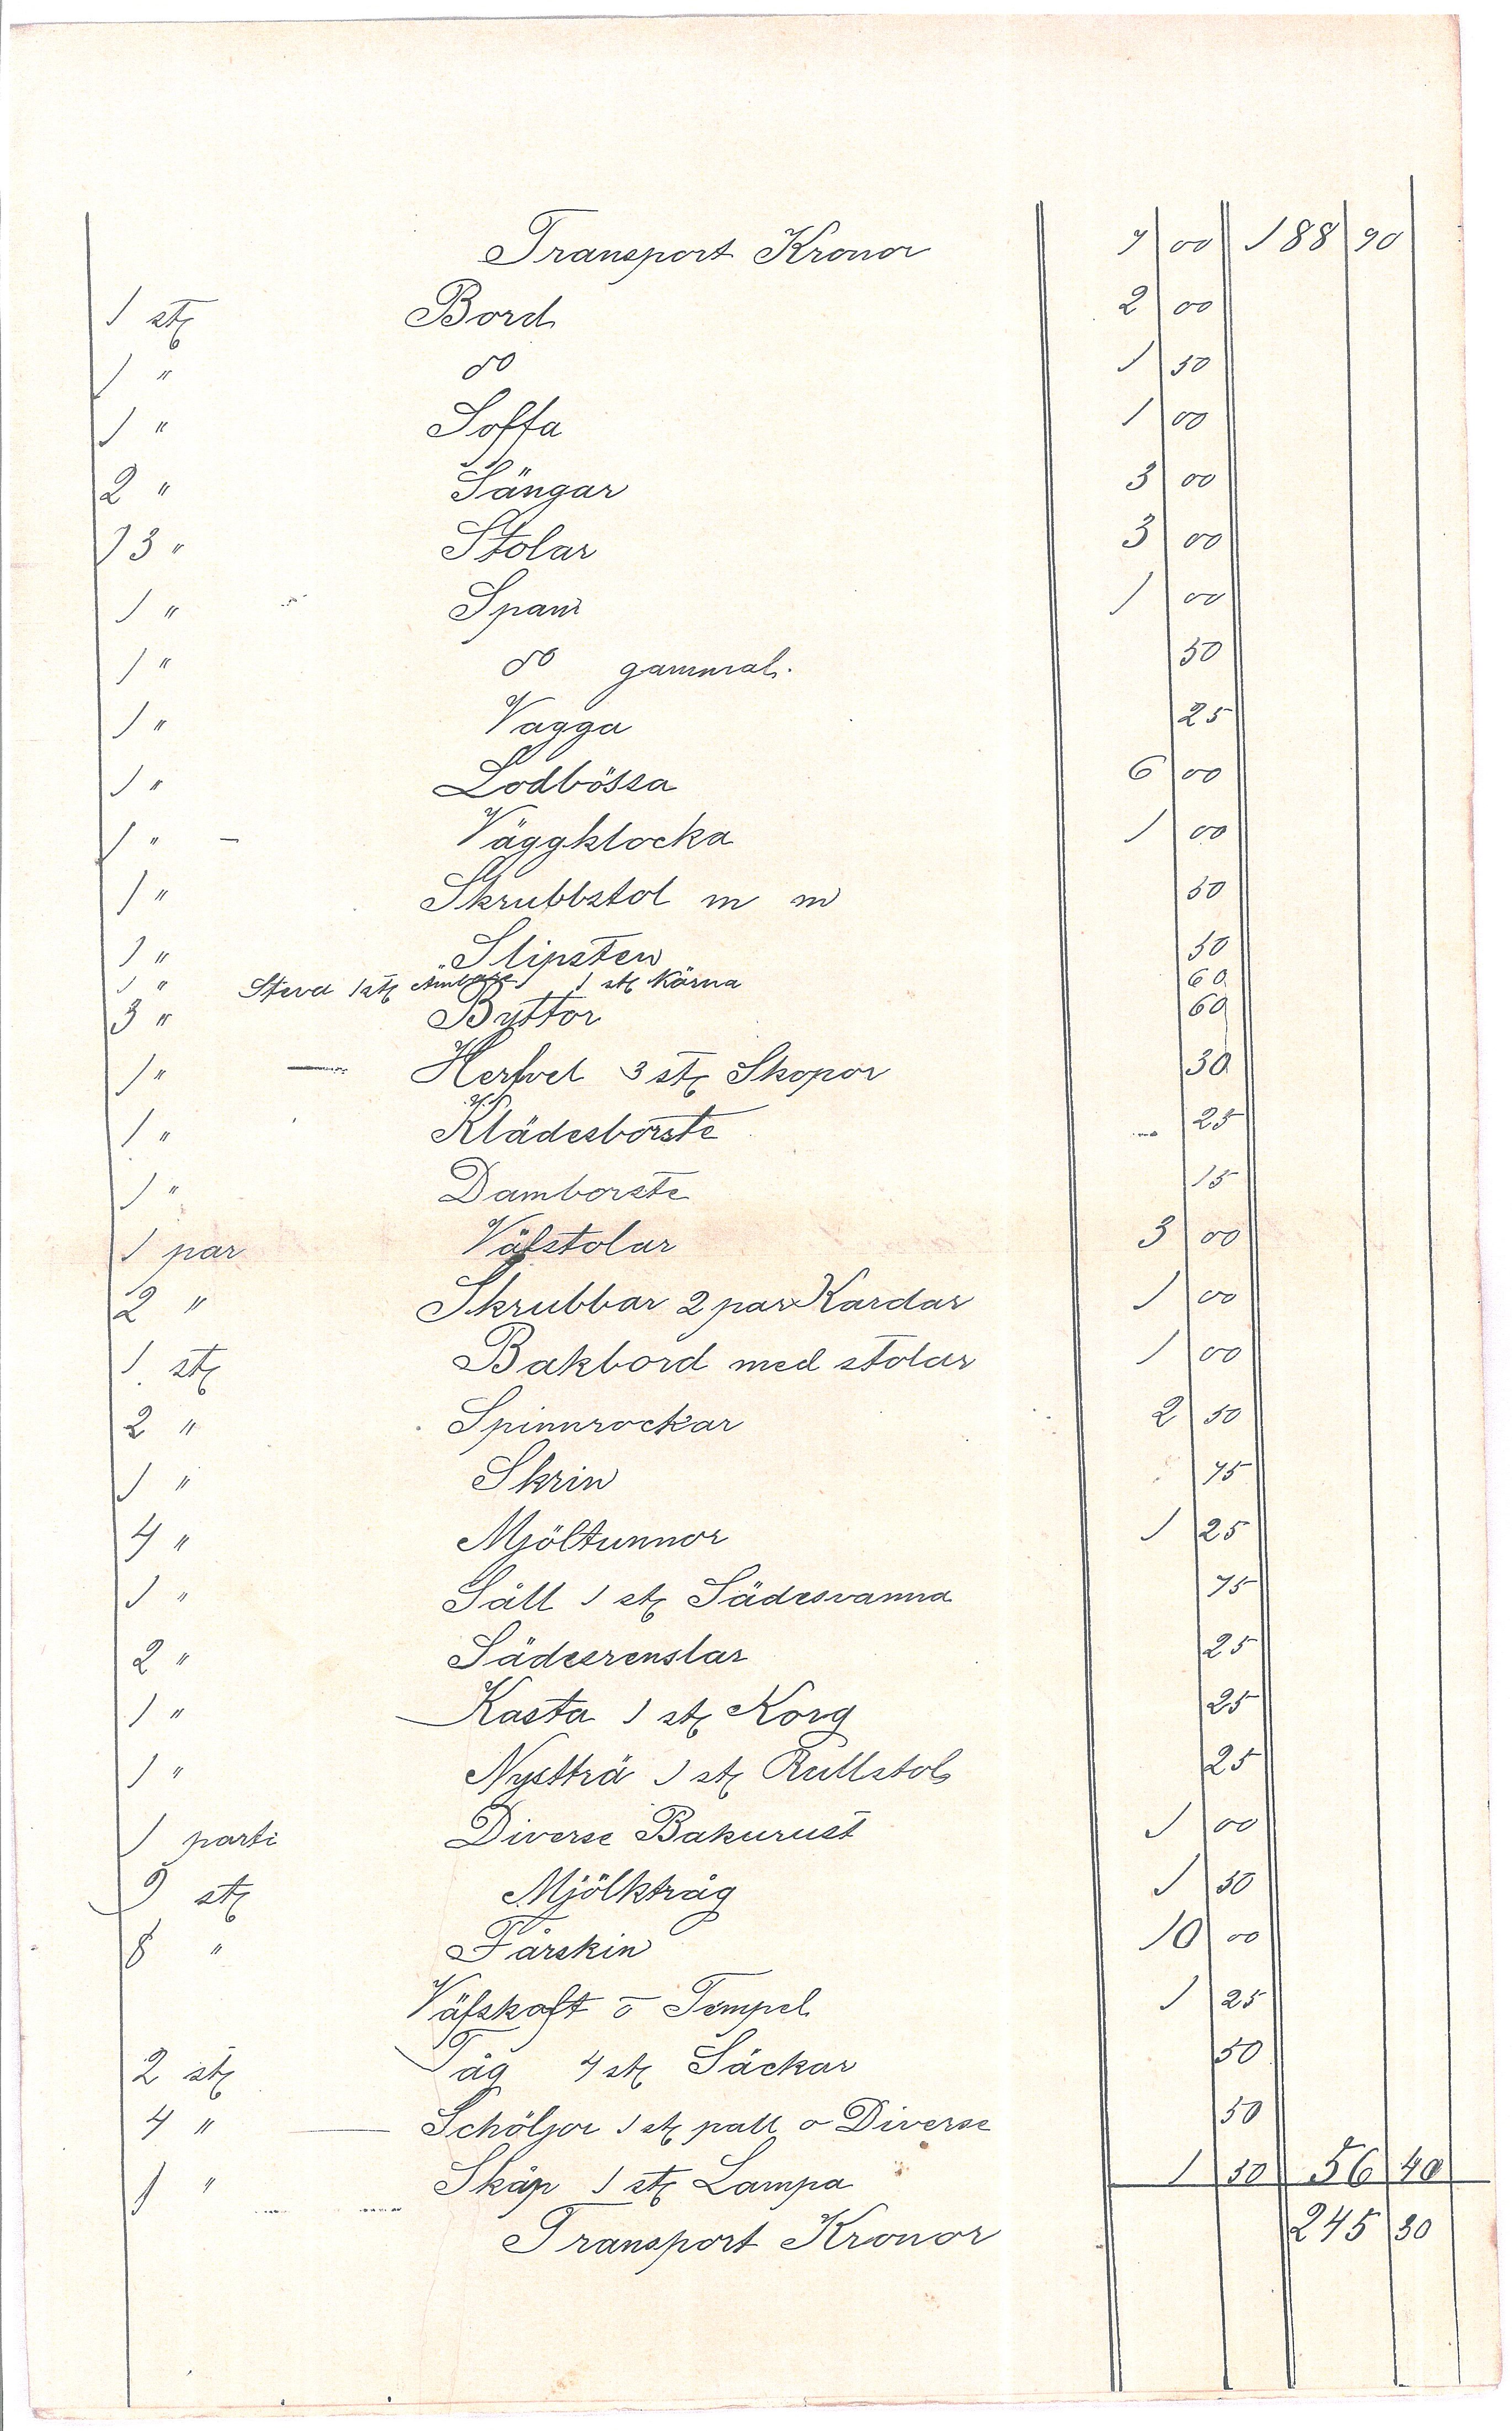 Transport Kronor 7 00 188 90
1 st Bord 2 00
1 " do 1 50
1 " Soffa 1 00
2 " Sängar 3 00
13 " Stolar 3 00
1 " Spann 1 00
1 " do gammal. 50
1 " Vagga 25
1 " Lodbössa 6 00
1 " Väggklocka 1 00
1 " Skrubbstol m m 50
1 " Slipsten 50
1 " Steva 1 st 1 st Kärna 60
3 " Byttor 60
1 " Herfvel 3 st Skopor 30
1 " Klädesborste 25
1 " Damborste 15
1 par Väfstolar 3 00
2 " Skrubbar 2 par Kardar 1 00
1 st Bakbord med stolar 1 00
2 " Spinnrockar 2 50
1 " Skrin 75
4 " Mjöltunnor 1 25
1 " Såll 1 st Sädesvanna 75
2 " Sädesrenslar 25
1 " Kasta 1 st Korg 25
1 " Nystträ 1 st Rullstol 25
1 parti Diverse Bakurust 1 00
9 st Mjölktråg 1 50
8 " Fårskin 10 00
Väfskaft o Tempel 1 25
2 st Tåg 4 st Säckar 50
4 " Schöljor 1 st pall o Diverse 50
1 " Skåp 1 st Lampa 1 50 56 40
Transport Kronor 245 30